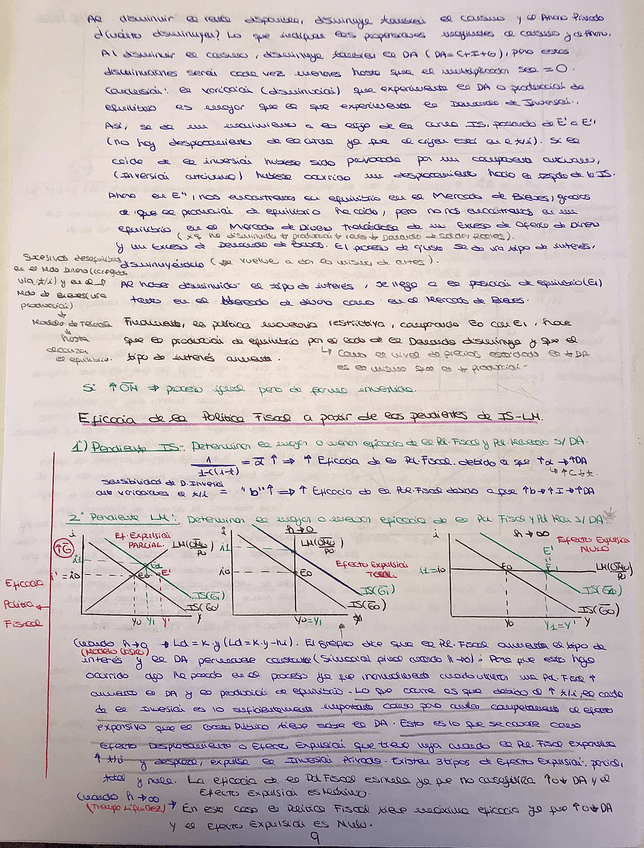 Al disminuir la renta disponible, disminuye también el consumo y el Ahorro Privado
¿Cuánto disminuyen? Lo que indiquen las propensiones marginales al consumo y al Ahorro.
Al disminuir el consumo, disminuye también la DA (DA=C+I+G), pero estas
disminuciones serán cada vez menores hasta que el multiplicador sea = 0.
Conclusión: la variación (disminución) que experimenta la DA o producción de
equilibrio es mayor que la que experimenta la Demanda de Inversión.
Así, se da un movimiento a lo largo de la curva IS, pasando de E' a E''
(no hay desplazamiento de la curva ya que el origen está en el t/i). Si la
caída de la inversión hubiese sido provocada por un componente autónomo,
(Inversión autónoma) hubiese ocurrido un desplazamiento hacia la izqda de la IS.
Ahora en E'', nos encontramos en equilibrio en el Mercado de Bienes, gracias
a que la producción de equilibrio ha caído, pero no nos encontramos en un
equilibrio en el Mercado de Dinero Tratándose de un Exceso de Oferta de Dinero
y un Exceso de Demanda de Bonos. El proceso de ajuste se da vía tipo de interés,
disminuyéndolo (se vuelve a dar lo mismo de antes).
Sucesivos desequilibrios
en el Mdo Dinero
vía t/i) y en el
Mdo de Bienes (vía
producción)
Al haber disminuido el tipo de interés, se llega a la posición de equilibrio (E1)
tanto en el Mercado de dinero como en el Mercado de Bienes.
hasta
alcanzar
el equilibrio.
Finalmente, la política monetaria restrictiva, comparando E0 con E1, hace
que la producción de equilibrio por el lado de la Demanda disminuya y que el
tipo de interés aumente.
↳ Como el nivel de precios está dado la ↓DA
es lo mismo que la ↓ producción.
Si ↑OM ⇒ proceso igual pero de forma invertida.
Eficacia de la Política Fiscal a partir de las pendientes de IS-LM.
1º) Pendiente IS: Determinan la mayor o menor eficacia de la Pol. Fiscal y Pol. Monetaria s/ DA.
= α ↑ ⇒ ↑ Eficacia de la Pol. Fiscal. debido a que ↑α → ↑DA
sensibilidad de D. Inversión
ante variaciones de t/i = "b"↑ ⇒ ↑ Eficacia de la Pol. Fiscal debido a que ↑b → ↑I → ↑DA
2º Pendiente LM: Determinan la mayor o menor eficacia de la Pol Fiscal y Pol Mon. s/ DA
↑G
Ef. Expulsión
PARCIAL
IS(G1)
IS(G0)
Y0 Y1 Y'
h→0
i1
i0
E0
Efecto Expulsión
TOTAL
IS(G1)
IS(G0)
Y0=Y1
h→∞
Efecto Expulsión
NULO
i1=i0
E0
E'
IS(G1)
IS(G0)
Y0
Y1=Y'
Eficacia
Política
Fiscal
Cuando h→0 → Ld = k.y (Ld = k.y - hi). El gráfico dice que la Pol. Fiscal aumenta el tipo de
interés y la DA permanece constante (Situación final cuando h→0). Para que esto haya
ocurrido algo ha pasado en el proceso ya que normalmente cuando utilizas una Pol. Fiscal ↑
aumenta la DA y la producción de equilibrio. Lo que ocurre es que debido al ↑ t/i, la caída
de la Inversión es lo suficientemente importante como para anular completamente el efecto
expansivo que el Gasto Público tiene sobre la DA. Esto es lo que se conoce como
Efecto Desplazamiento o Efecto Expulsión que tiene lugar cuando la Pol. Fiscal expansiva
↑ t/i y desplaza, expulsa la Inversión Privada. Existen 3 tipos de Efecto Expulsión: parcial,
total y nulo. La eficacia de la Pol Fiscal es nula ya que no consigue ↑ o ↓ DA y el
Efecto Expulsión es Máximo.
Cuando h→∞
(Trampa Liquidez) → En este caso la Política Fiscal tiene máxima eficacia ya que ↑ o ↓ DA
y el Efecto Expulsión es Nulo.
9